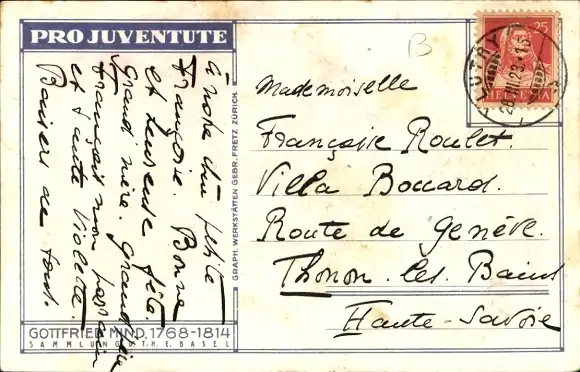 PRO JUVENTUTE
À notre chère petite
Françoise. Bonne
et heureuse fête.
Grand'mère. Grand
français non
et tante Violette.
Baisers de tous.
GOTTFRIED MIND, 1768-1814
SAMMLUNG U.TH.E. BASEL
GRAPH. WERKSTÄTTEN GEBR. FRETZ ZÜRICH.
B
25
HELVETIA
LUTRY
Mademoiselle
Françoise Roulet.
Villa Boccard.
Route de Genève.
Thonon-les-Bains
Haute-Savoie